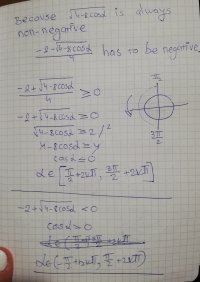 Because √4-8cosα is always
non-negative
-2-√4-8cosα / 4 has to be negative
-2+√4-8cosα / 4 ≥ 0
π/2
-2+√4-8cosα ≥ 0
√4-8cosα ≥ 2 /²
4-8cosα ≥ 4
3π/2
cosα ≤ 0
α ∈ [π/2+2kπ, 3π/2+2kπ]
-2+√4-8cosα < 0
cosα > 0
α ∈ (-π/2+2kπ, π/2+2kπ)